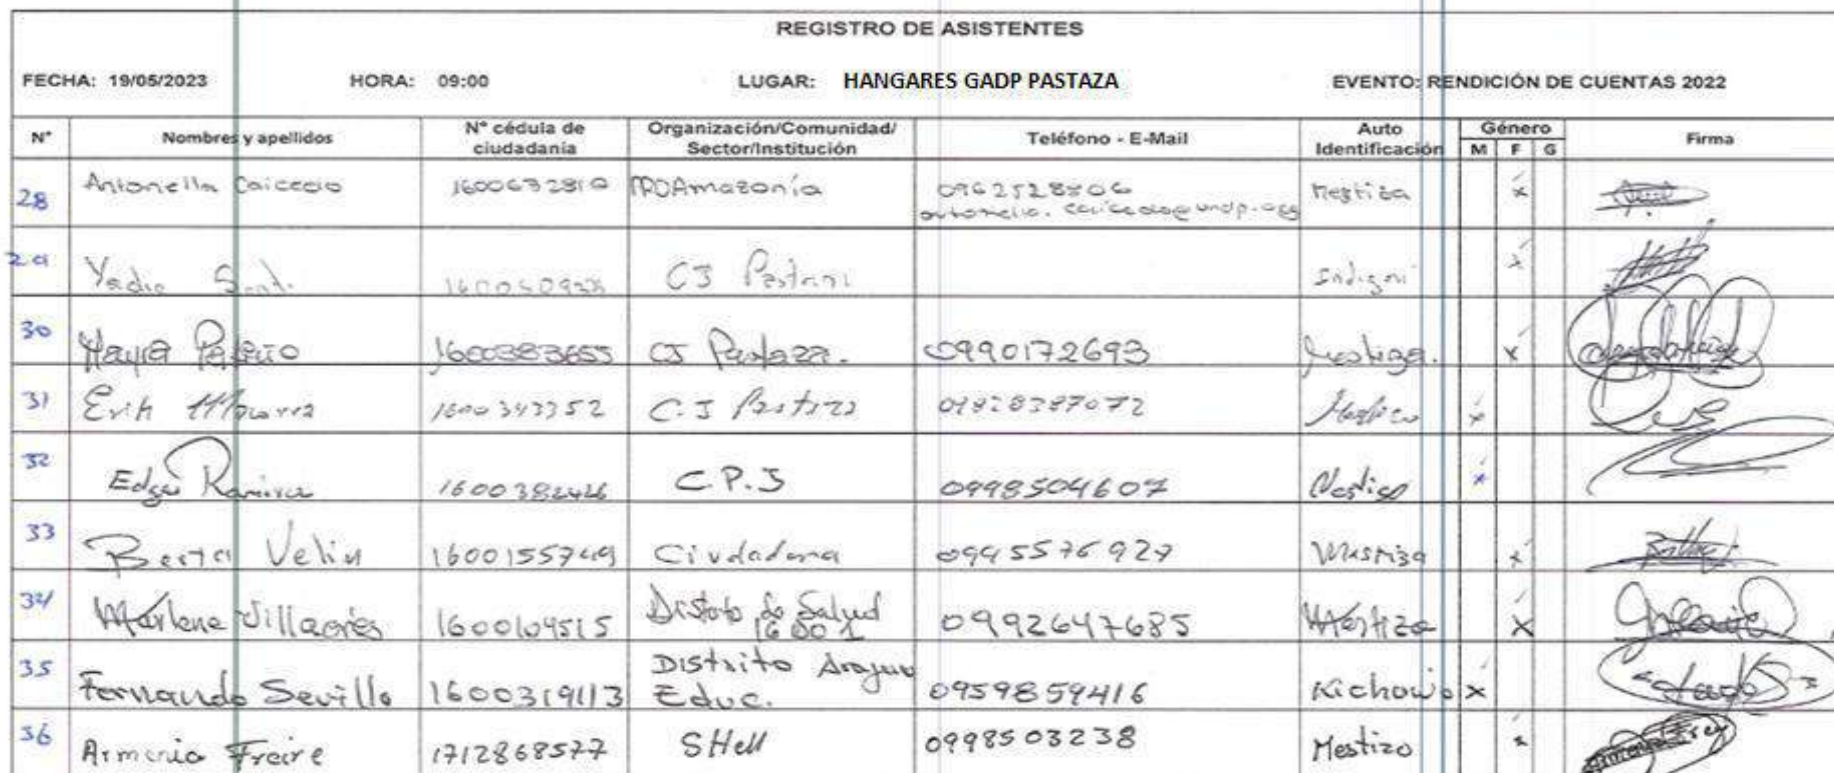 REGISTRO DE ASISTENTES
FECHA: 19/05/2023 HORA: 09:00 LUGAR: HANGARES GADP PASTAZA EVENTO: RENDICIÓN DE CUENTAS 2022
N° Nombres y apellidos N° cédula de ciudadanía Organización/Comunidad/ Sector/Institución Teléfono - E-Mail Auto Identificación Género M F G Firma
28 Antonella Caicedo 1600632810 PROAmazonía Mestiza x
29 CJ x
30 Mayra 1600383655 CJ Pastaza. 0990172693 Mestiza. x
31 Erik 1600343352 C.J 09828387072 x
32 Edgar Ramirez 1600382426 C.P.J 0998504607 Mestiso x
33 Berta Velin 1600155749 Ciudadana 0995576927 Mestiza x
34 Marlene Villacrés 1600109515 Distrito de Salud 0992647685 Mestiza x
Distrito Arajuno
35 Fernando Sevilla 1600319113 Educ. 0959859416 x
36 Armenia Freire 1712868577 SHell 0998503238 Mestizo x